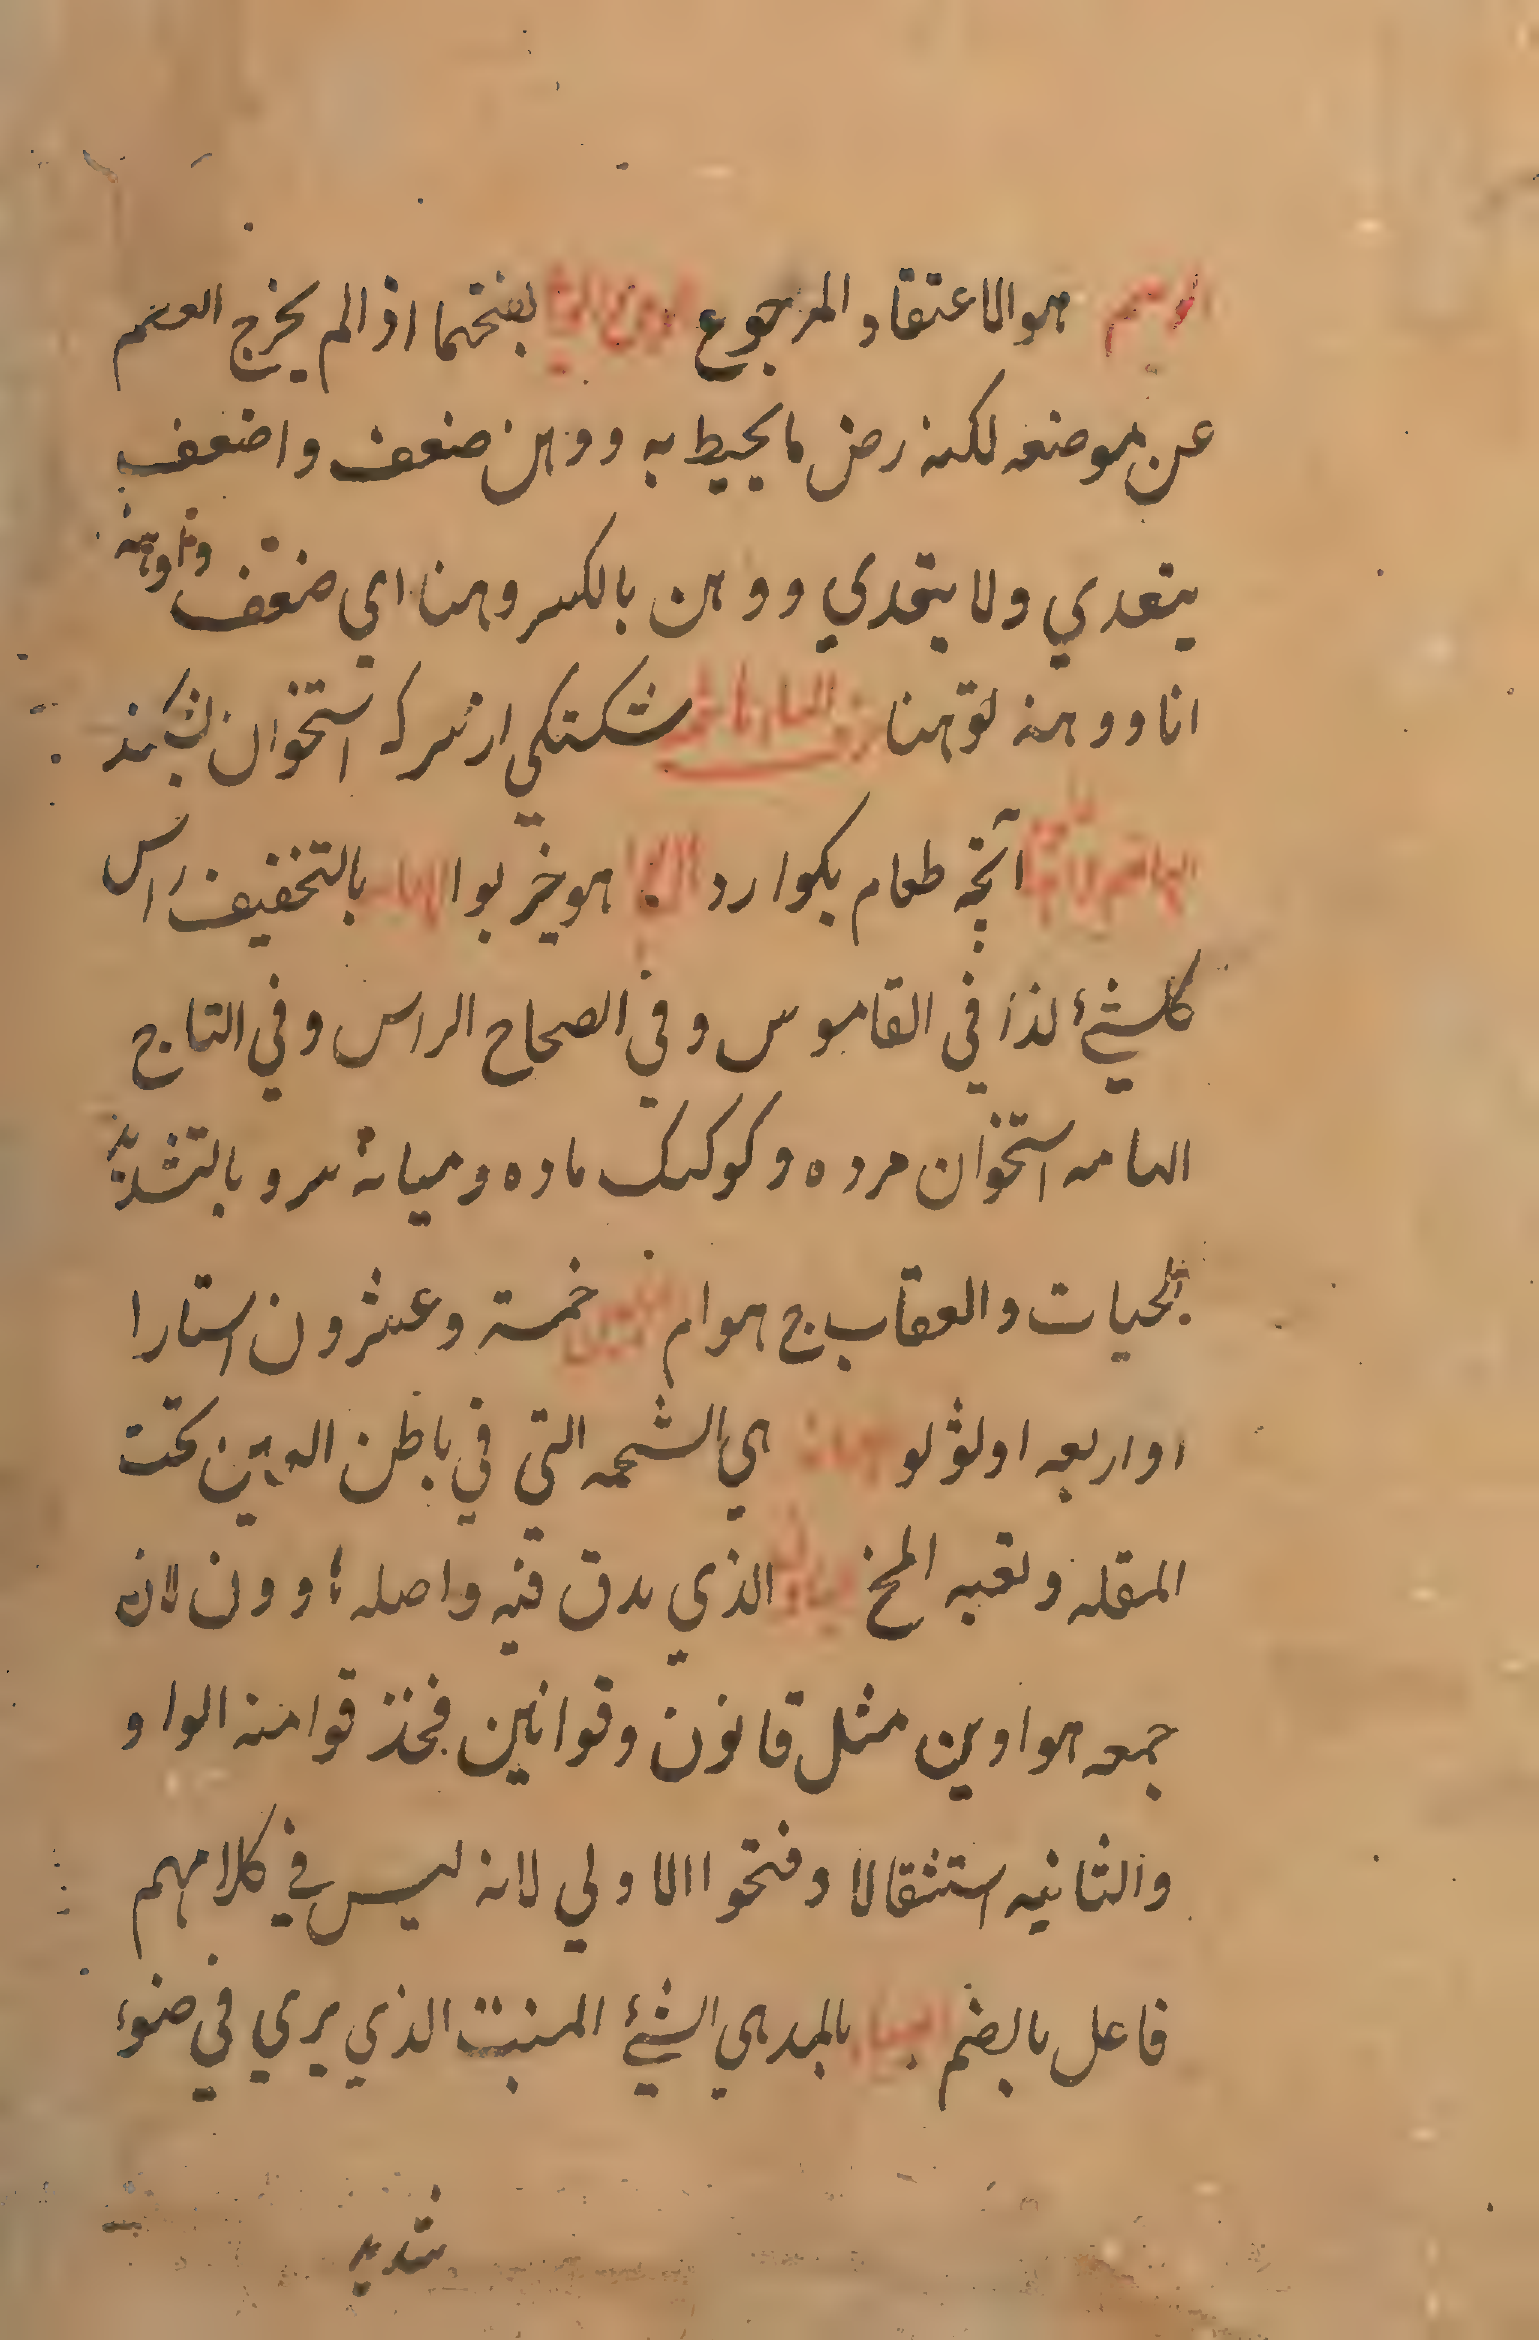 الوهم هو الاعتقاد المرجوع بفتحها اذا لم يخرج العظم
عن موضعه لكنه رض ما يحيط به ووهن ضعف واضعف
يتعدي ولا يتعدي ووهن بالكسر وهنا اي ضعف واوهنه
انا ووهنه توهنا شكستكي از سر كه استخوان بشكند
الهاضم آنچه طعام بكوارد هو خربوا الهامه بالتخفيف راس
كلشئ كذا في القاموس وفي الصحاح الراس وفي التاج
الهامه استخوان مرده وكوكبك ماده وميانه سر و بالتشديد
الحيات والعقاب ج هوام خمسة وعشرون استارا
او اربعه او لؤلو هي الشحمه التي في باطن العين تحت
المقله ولقبه المخ الذي يدق فيه واصله هاوون لان
جمعه هواوين مثل قانون وقوانين فحذفوا منه الواو
والثانيه استثقالا وفتحوا الاولي لانه ليس في كلامهم
فاعل بالضم الهباء بالمد هي الشئ المنبث الذي يري في ضوء